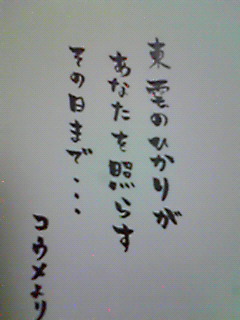 東雲のひかりが
あなたを照らす
その日まで・・・
コウメより